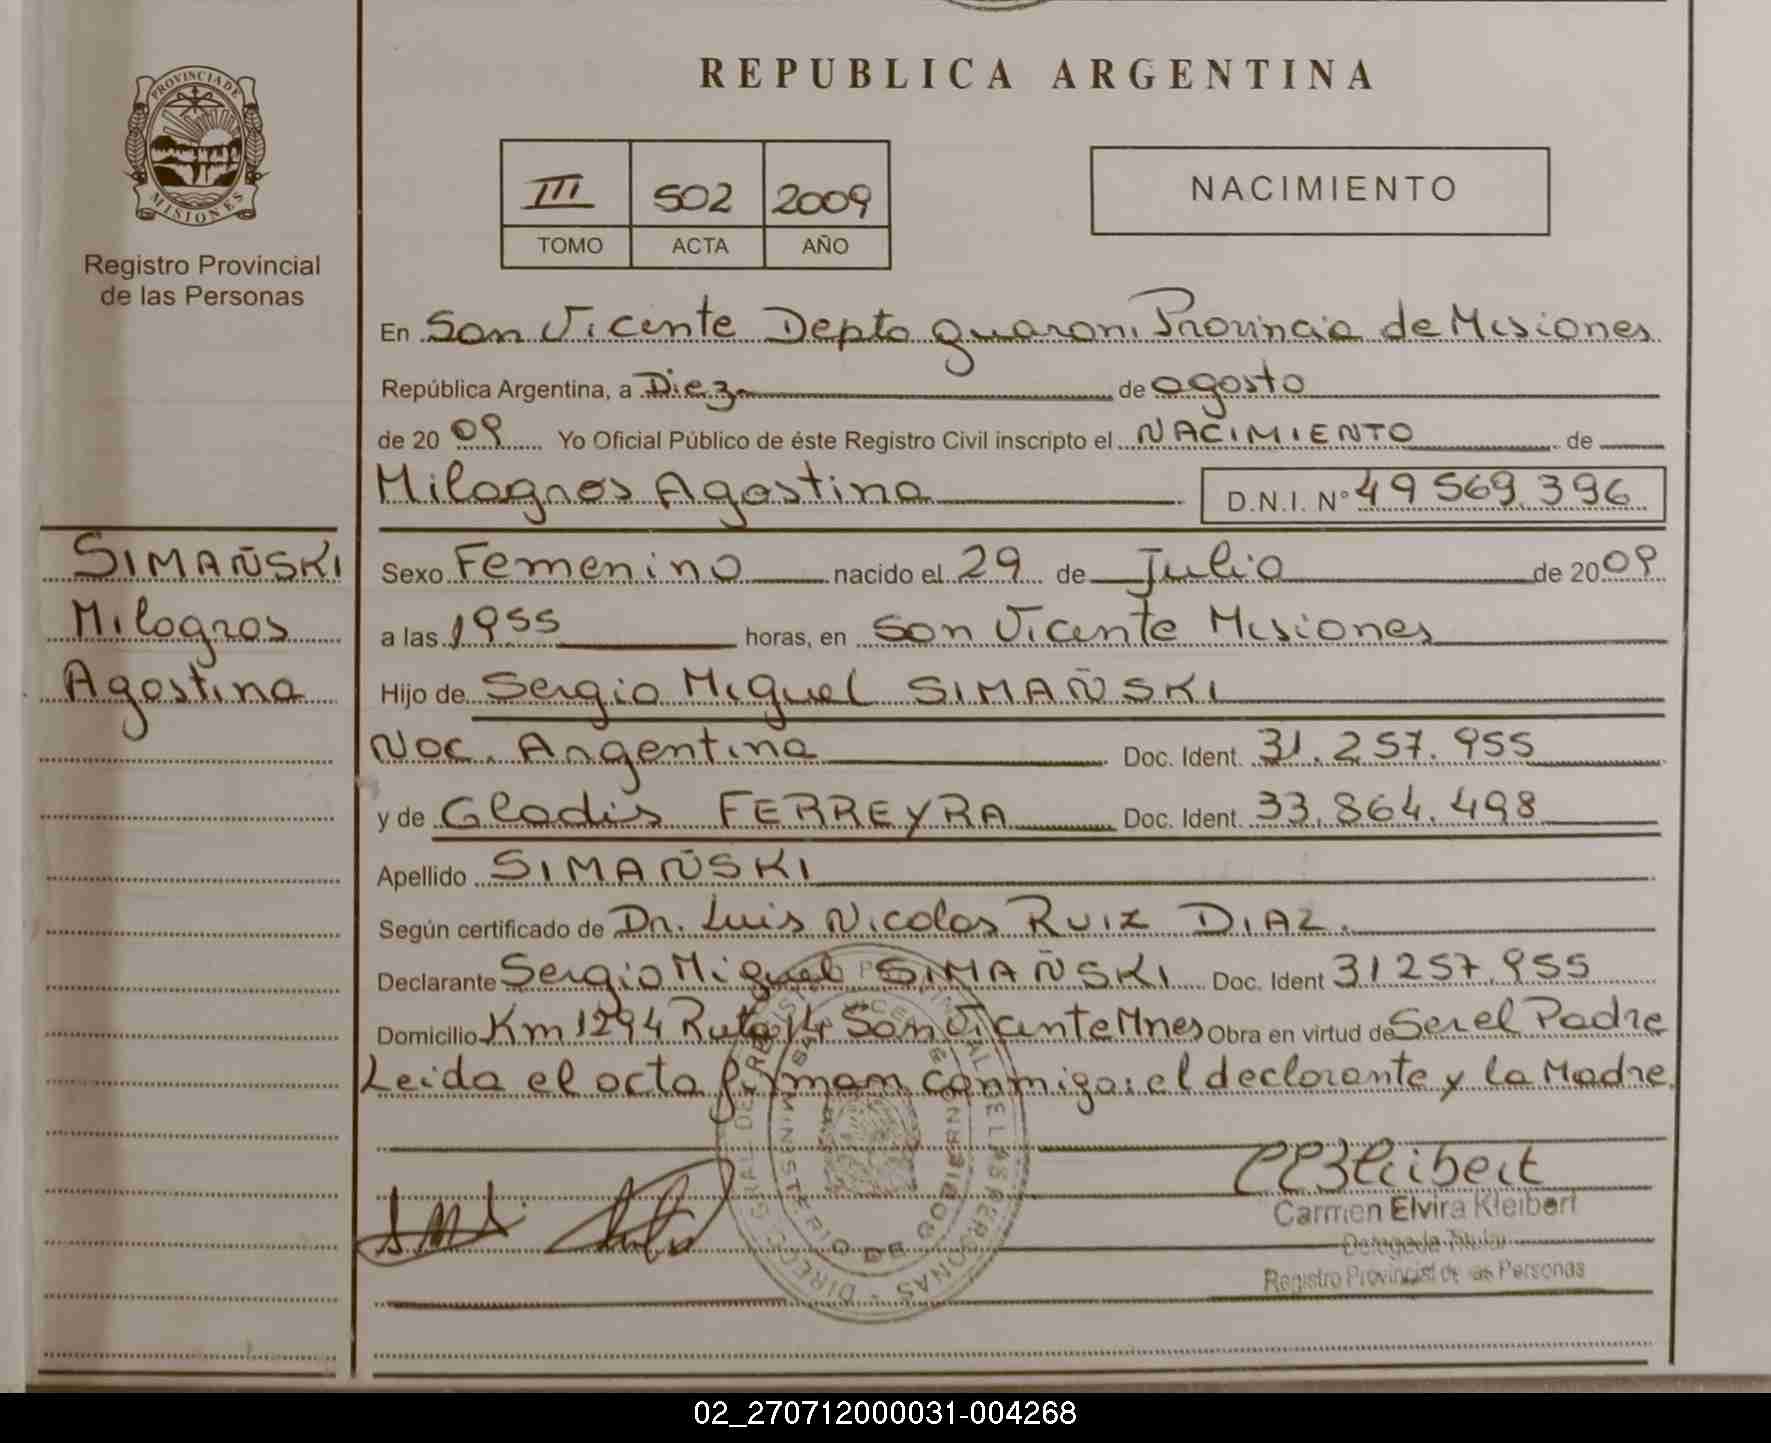 PROVINCIA DE
MISIONES
Registro Provincial
de las Personas
SIMAÑSKI
Milagros
Agostina
REPUBLICA ARGENTINA
III 502 2009
TOMO ACTA AÑO
NACIMIENTO
En San Vicente Depto guarani Provincia de Misiones
República Argentina, a Diez de agosto
de 2009 Yo Oficial Público de éste Registro Civil inscripto el NACIMIENTO de
Milagros Agostina D.N.I. Nº 49 569.396
Sexo Femenino nacido el 29 de Julio de 2009
a las 1955 horas, en San Vicente Misiones
Hijo de Sergio Miguel SIMAÑSKI
Nac. Argentina Doc. Ident. 31.257.955
y de Gladis FERREYRA Doc. Ident. 33.864.498
Apellido SIMAÑSKI
Según certificado de Dr. Luis Nicolas RUIZ DIAZ.
Declarante Sergio Miguel SIMAÑSKI Doc. Ident 31257.955
Domicilio Km 1294 Ruta 14 San Vicente Mnes Obra en virtud de Ser el Padre
Leida el acta firman conmigo: el declarante y la Madre.
MINISTERIO DE GOBIERNO
Carmen Elvira Kleibert
Delegada Titular
Registro Provincial de las Personas
02_270712000031-004268